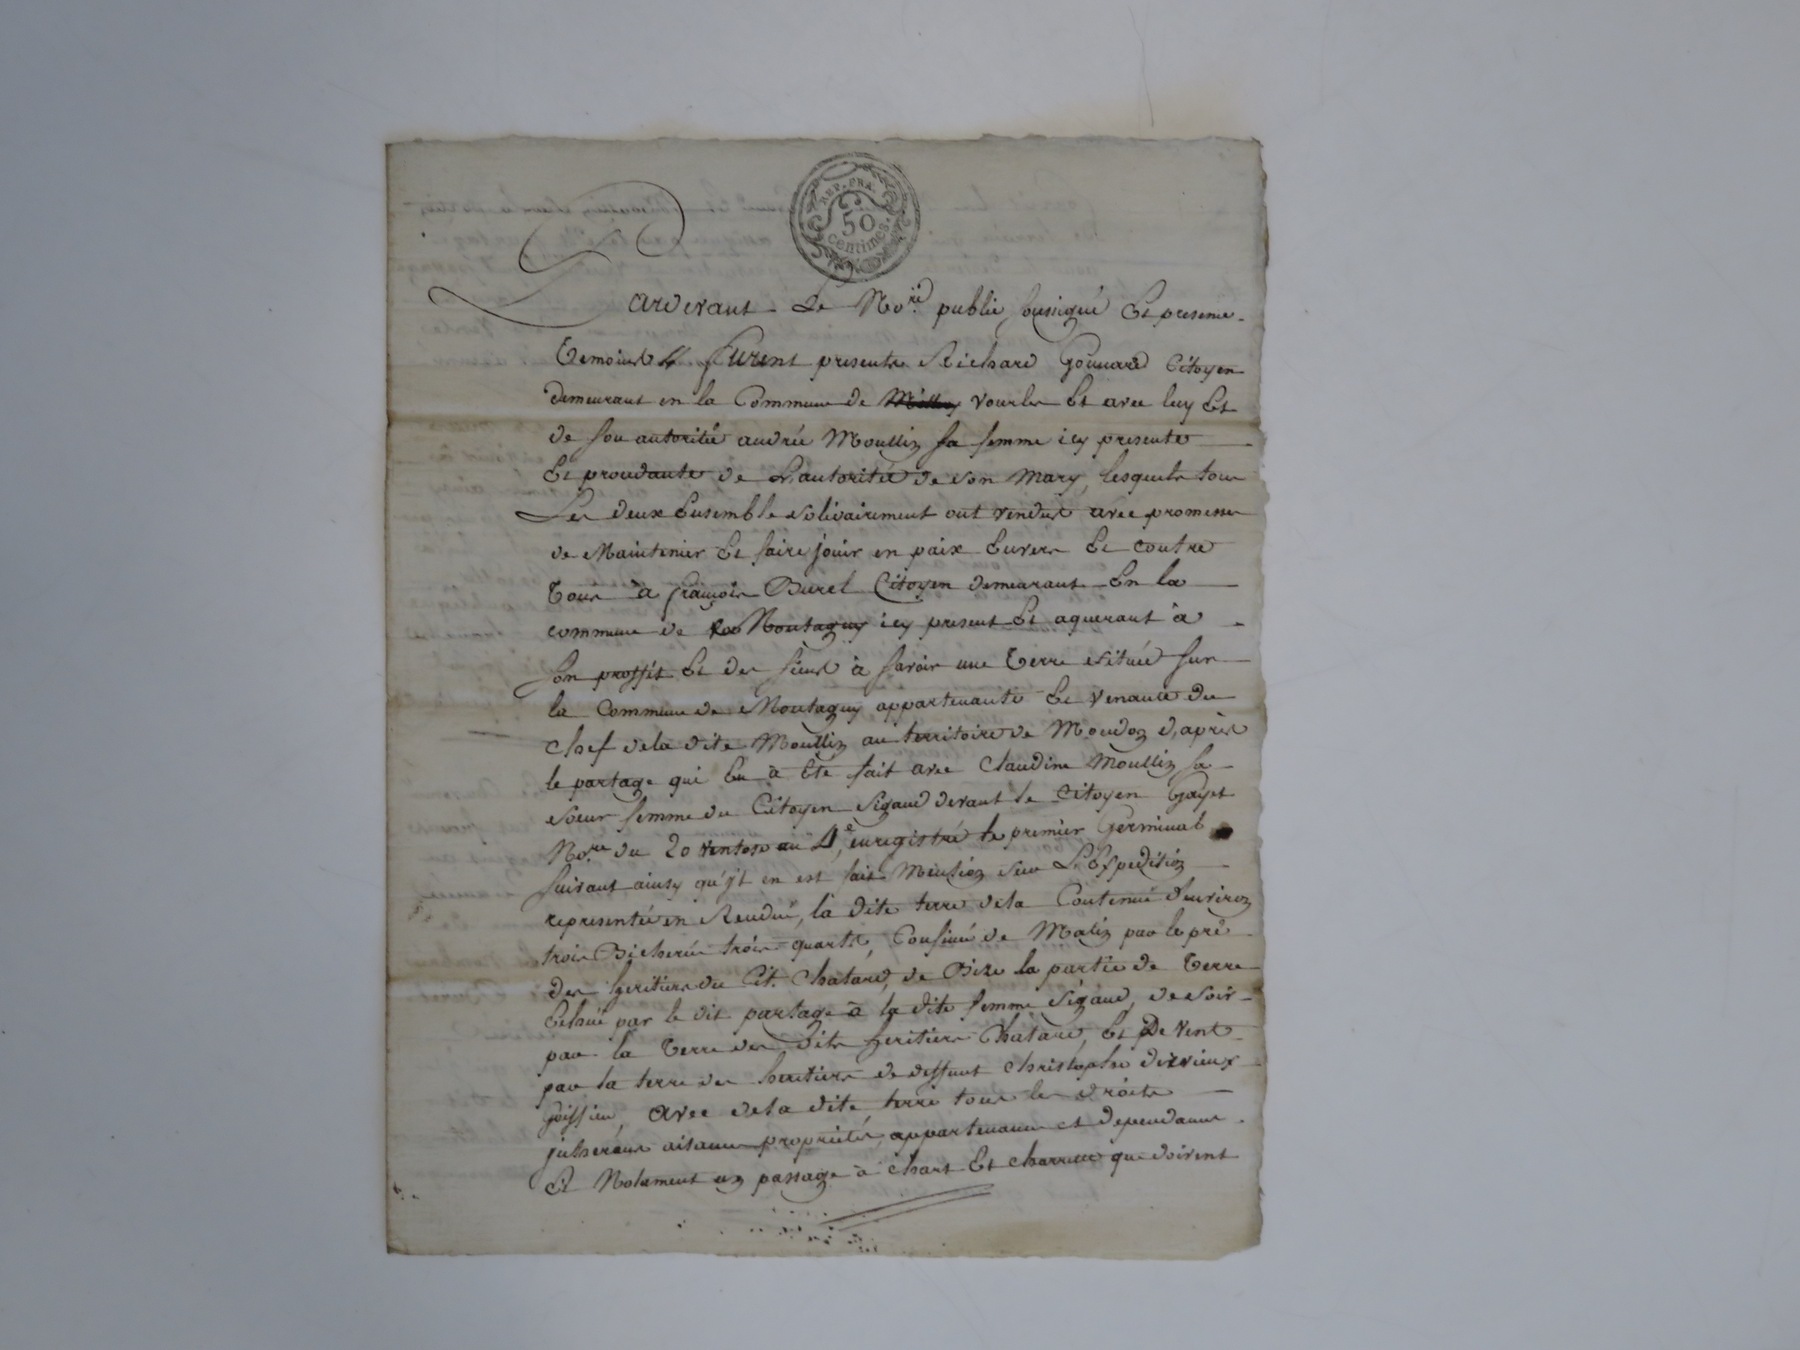 REP. FRA.
50
centimes.
Pardevant Le No.re public soussigné Et presents
temoins furent presents Richard Goüuard Citoyen
demeurant en la Commune de Vourles Et avec luy Et
de son autorité andrée Moullin sa femme icy presente
Et procedante de L'autorité de son Mary, lesquels tous
Les deux Ensemble solidairement ont vendus avec promesse
de Maintenir Et faire jouir en paix Envers Et contre
tous à françois Burel Citoyen demeurant En la
commune de Montagny icy present Et aquerant à
son proffit Et des siens à savoir une terre située sur
la Commune de Montagny appartenante Et venante du
chef dela dite Moullin au territoire de Moudon d'après
le partage qui En à Eté fait avec Claudine Moullin sa
soeur femme du Citoyen Sigaud devant le Citoyen Gayet
No.re du 20 ventose an 4e, enregistré le premier Germinal
suivant ainsy qu'jl en est fait Mention sur L'Expedition
representée en Rendue, la dite terre dela Contenue d'environ
trois Bicherées trois quarts, Confinée de Matin par le pré
des heritiers du Cit. Chatard, de Bize la partie de terre
Echué par le dit partage à la dite femme Sigaud, de soir
par la terre des dits heritiers Chatard, Et De vent
par la terre des heritiers de deffunt Christophe dervieux
avec dela dite terre tous les droits
aisances proprietés, appartenances et dependances
Et Notament un passage à chart Et charrette que doivent